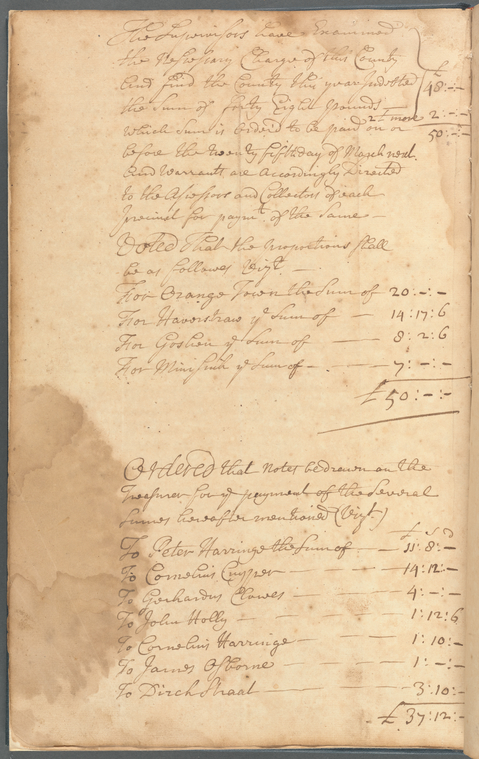 The Supervisors have Examined
the Nessessary Charge of this County
And find the County this year Indebted
the Sum of forty Eight pounds — £ 48:-:-
2£ more 2:-:-
which Sum is ordered to be paid on or 50:-:-
before the twenty fifth day of March next.
And warrants are Accordingly Directed
to the Assessors and Collectors of each
precinct for paymt. of the Same —
Voted That the Proportions shall
be as followes Vizt. —
For Orange Town the Sum of 20:-:-
For Haverstraw ye Sum of — 14:17:6
For Goshen ye Sum of — 8:2:6
For Minisink ye Sum of - . — 7:-:-
£50:-:-
Ordered that Notes be drawn on the
Treasurer for ye payment of the Several
Sumes hereafter mentioned (Vizt.)
£ S D
To Peter Harringe the Sum of — 11:8:-
To Cornelius Cuyper — 14:12:-
To Gerhardus Clowes — 4:-:-
To John Holly — 1:12:6
To Cornelius Harringe — 1:10:-
To James Osborne — 1:-:-
To Dirck Straat — 3:10:-
£37:12:-